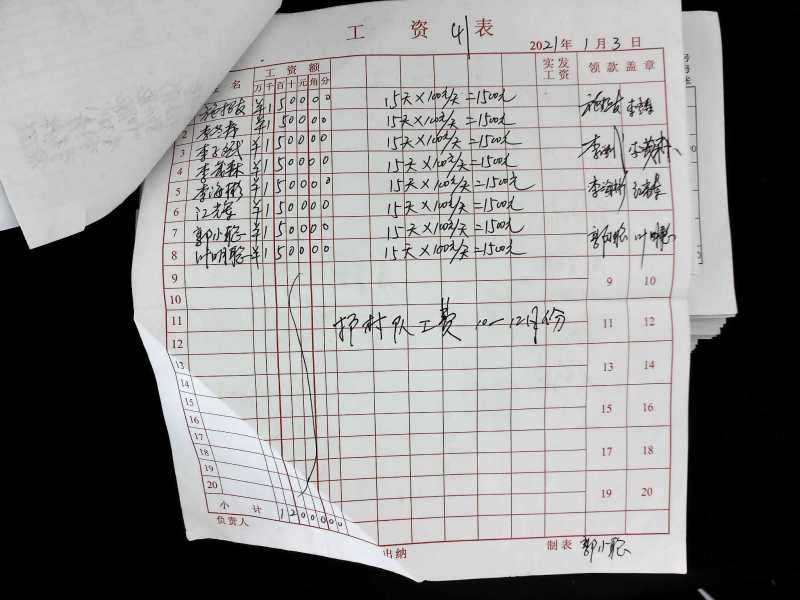 工资表
2021年1月3日
名 工资额 实发工资 领款盖章
万千百十元角分
¥150000 15天×100元/天=1500元
2 ¥150000 15天×100元/天=1500元
3 ¥150000 15天×100元/天=1500元
4 ¥150000 15天×100元/天=1500元
5 李海彬 ¥150000 15天×100元/天=1500元 李海彬
6 ¥150000 15天×100元/天=1500元
7 郭小聪 ¥150000 15天×100元/天=1500元 郭小聪
8 叶明聪 ¥150000 15天×100元/天=1500元 叶明聪
9 9 10
10
11 护村队工费 10-12月份 11 12
12
13 13 14
14
15 15 16
16
17 17 18
18
19 19 20
20
小计 1200000
负责人 出纳 制表 郭小聪